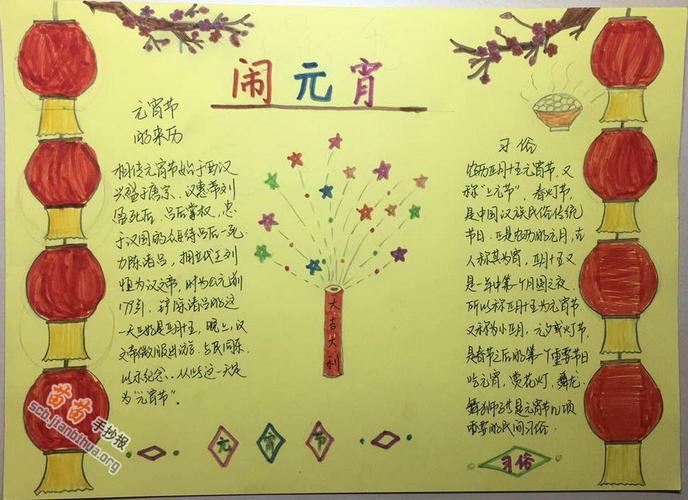 闹元宵
元宵节
的来历
相传元宵节始于西汉
兴盛于唐宗、汉惠帝刘
盈死后,吕后掌权,忠
于汉国的众臣待吕后一死
力除诸吕,拥立代王刘
恒为汉文帝,时为公元前
179年,
一天正好是正月十五,晚上,汉
文帝微服出游,与民同乐
以示纪念、从此这一天定
为"元宵节"。
大吉大利
习俗
农历正月十五元宵节,又
称"上元节",春灯节,
是中国汉族民俗传统
节日。正是农历的元月,古
人称其为宵,正月十五又
是一年中第一个月圆之夜
所以称正月十五为元宵节
又称为小正月,元夕或灯节,
是春节之后的第一个重要节日
吃元宵,赏花灯,舞龙,
舞狮子等是元宵节几项
重要的民间习俗。
元宵节
习俗
苗苗手抄报
scbyjianbihua.org